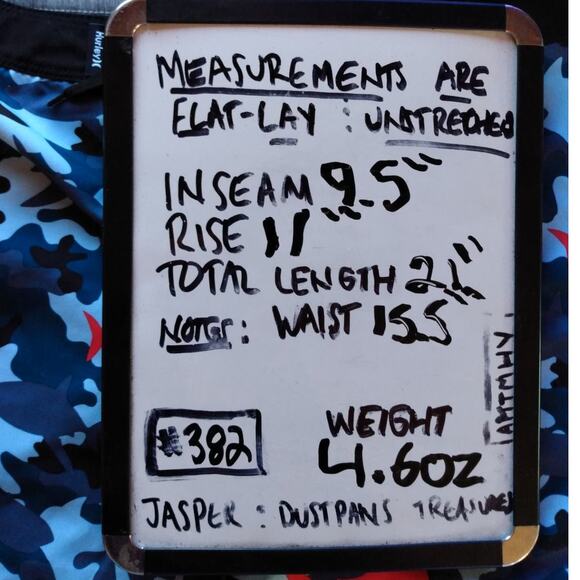 Hurley
MEASUREMENTS ARE
FLAT-LAY : UNSTRETCHED
INSEAM 9.5"
RISE 11"
TOTAL LENGTH 21"
NOTES: WAIST 15.5"
IAMTMHY
#382
WEIGHT
4.6OZ
JASPER : DUSTPANS TREASURES